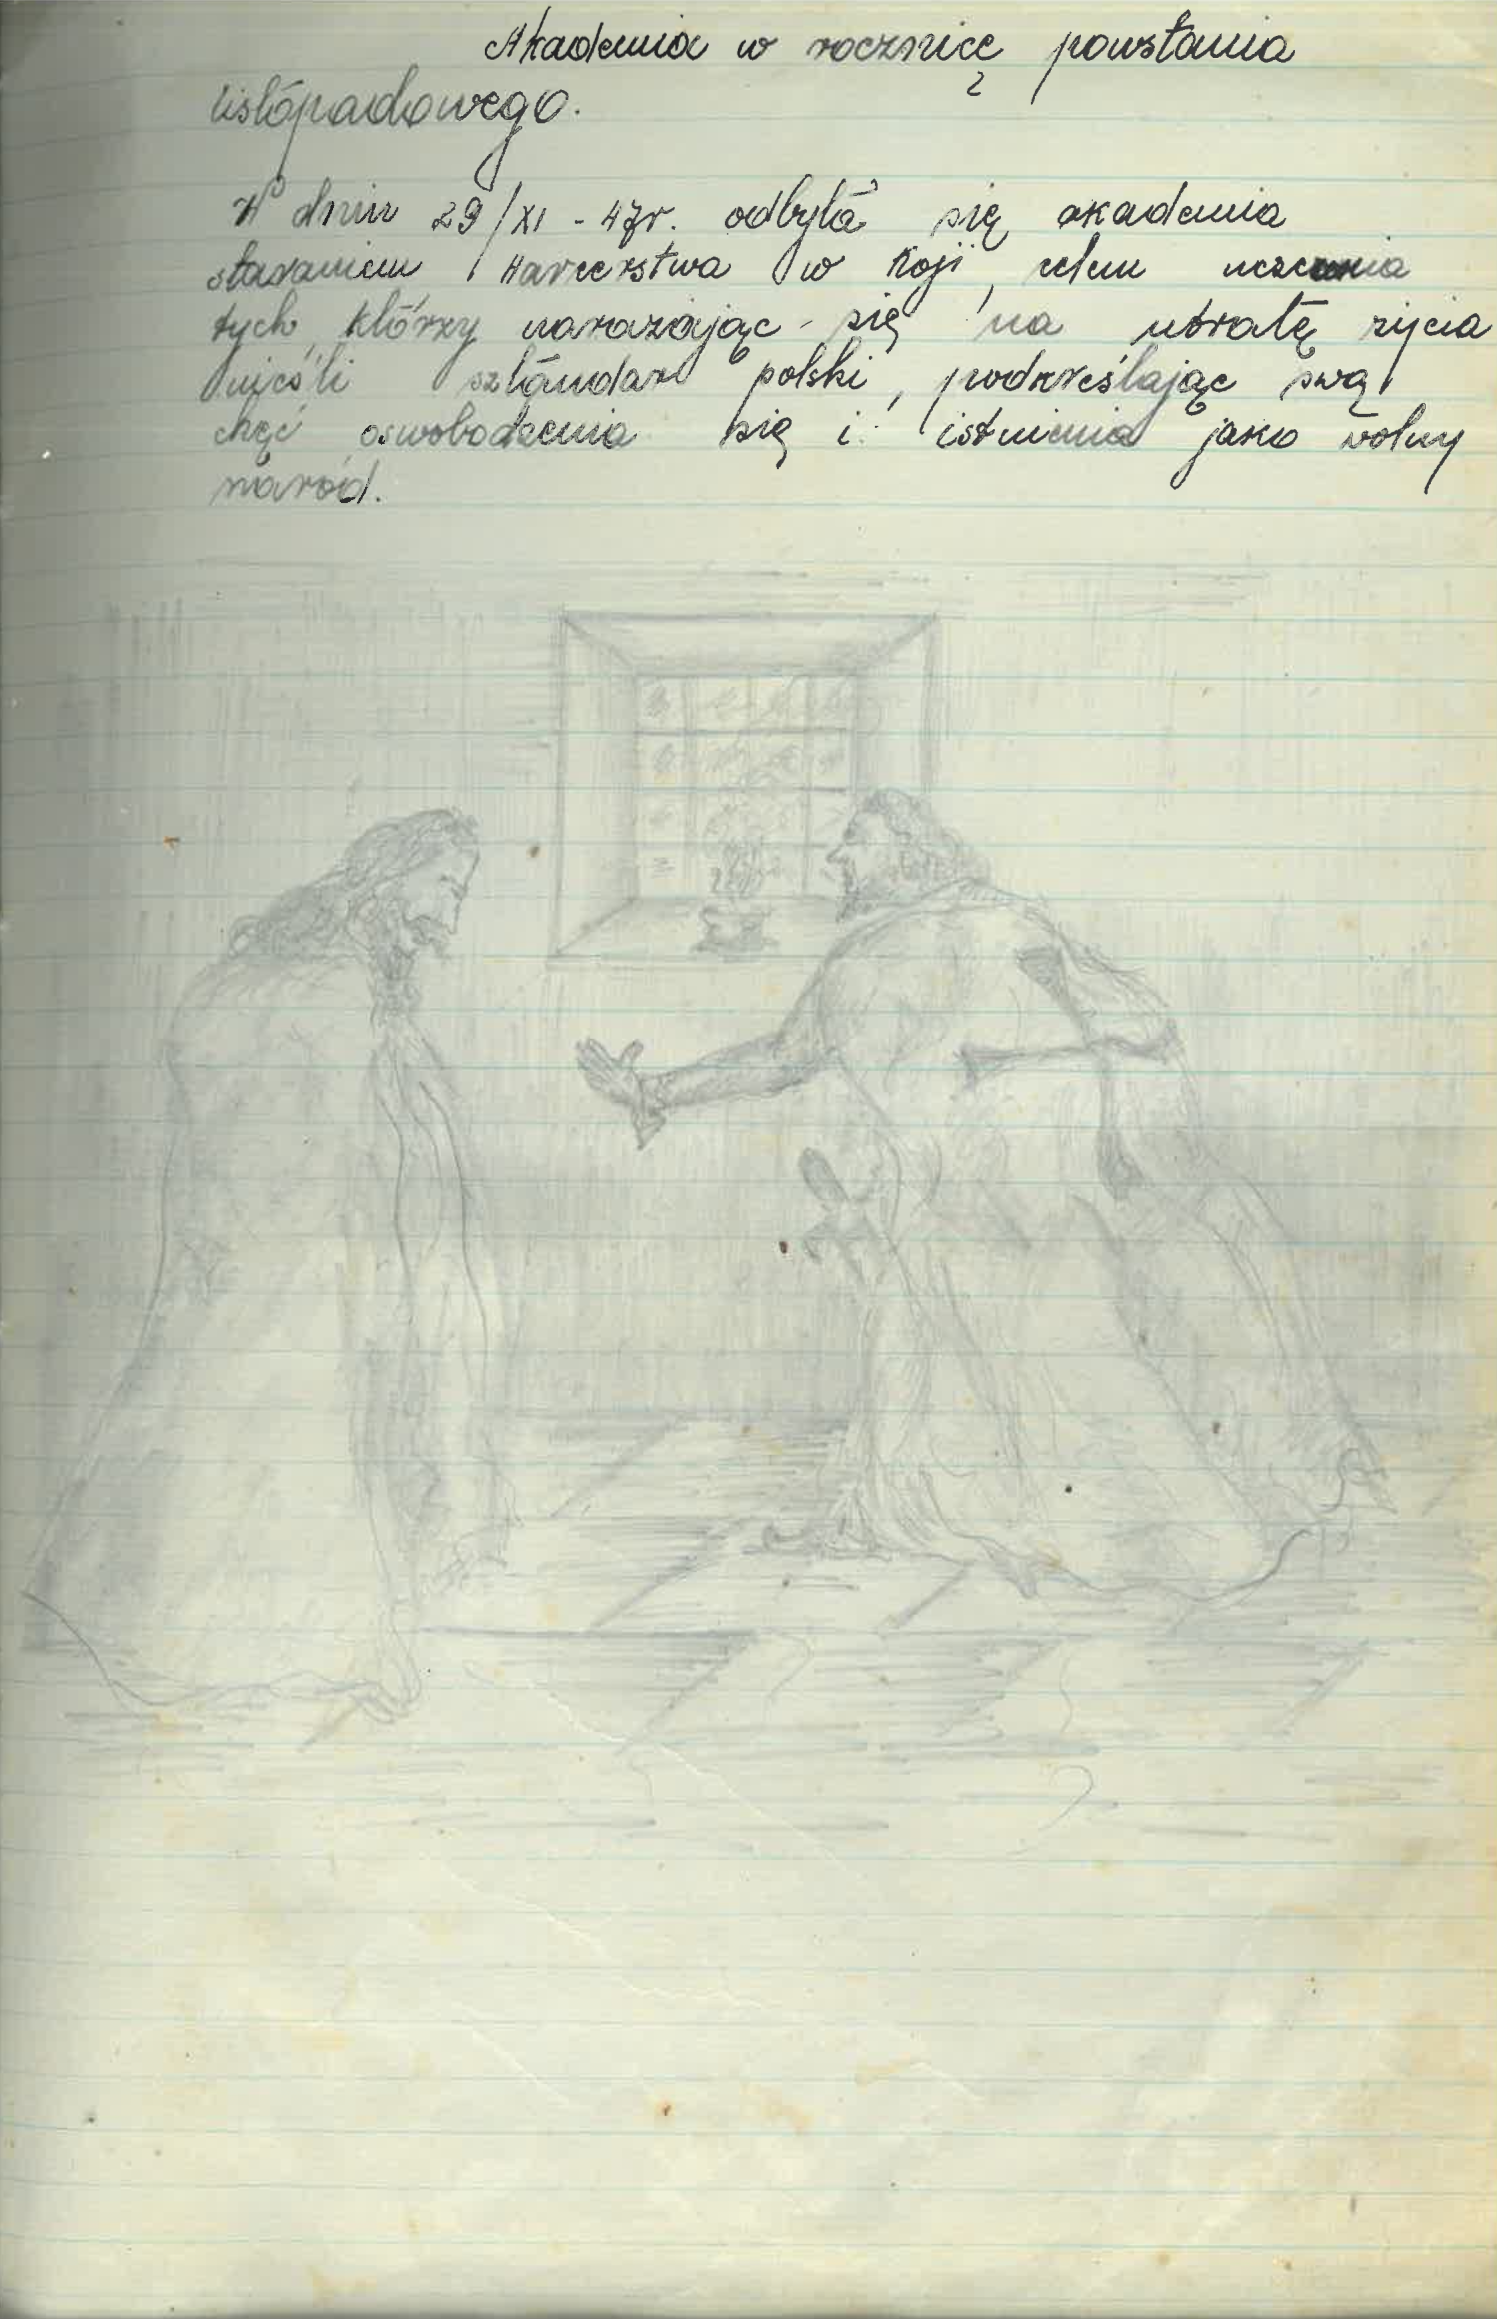 Akademia w rocznicę powstania
listopadowego.
W dniu 29/XI - 47r. odbyła się akademia
staraniem Harcerstwa w Koji, celem uczczenia
tych, którzy narażając się na utratę życia
nieśli sztandar polski, podkreślając swą
chęć oswobodzenia się i istnienia jako wolny
naród.